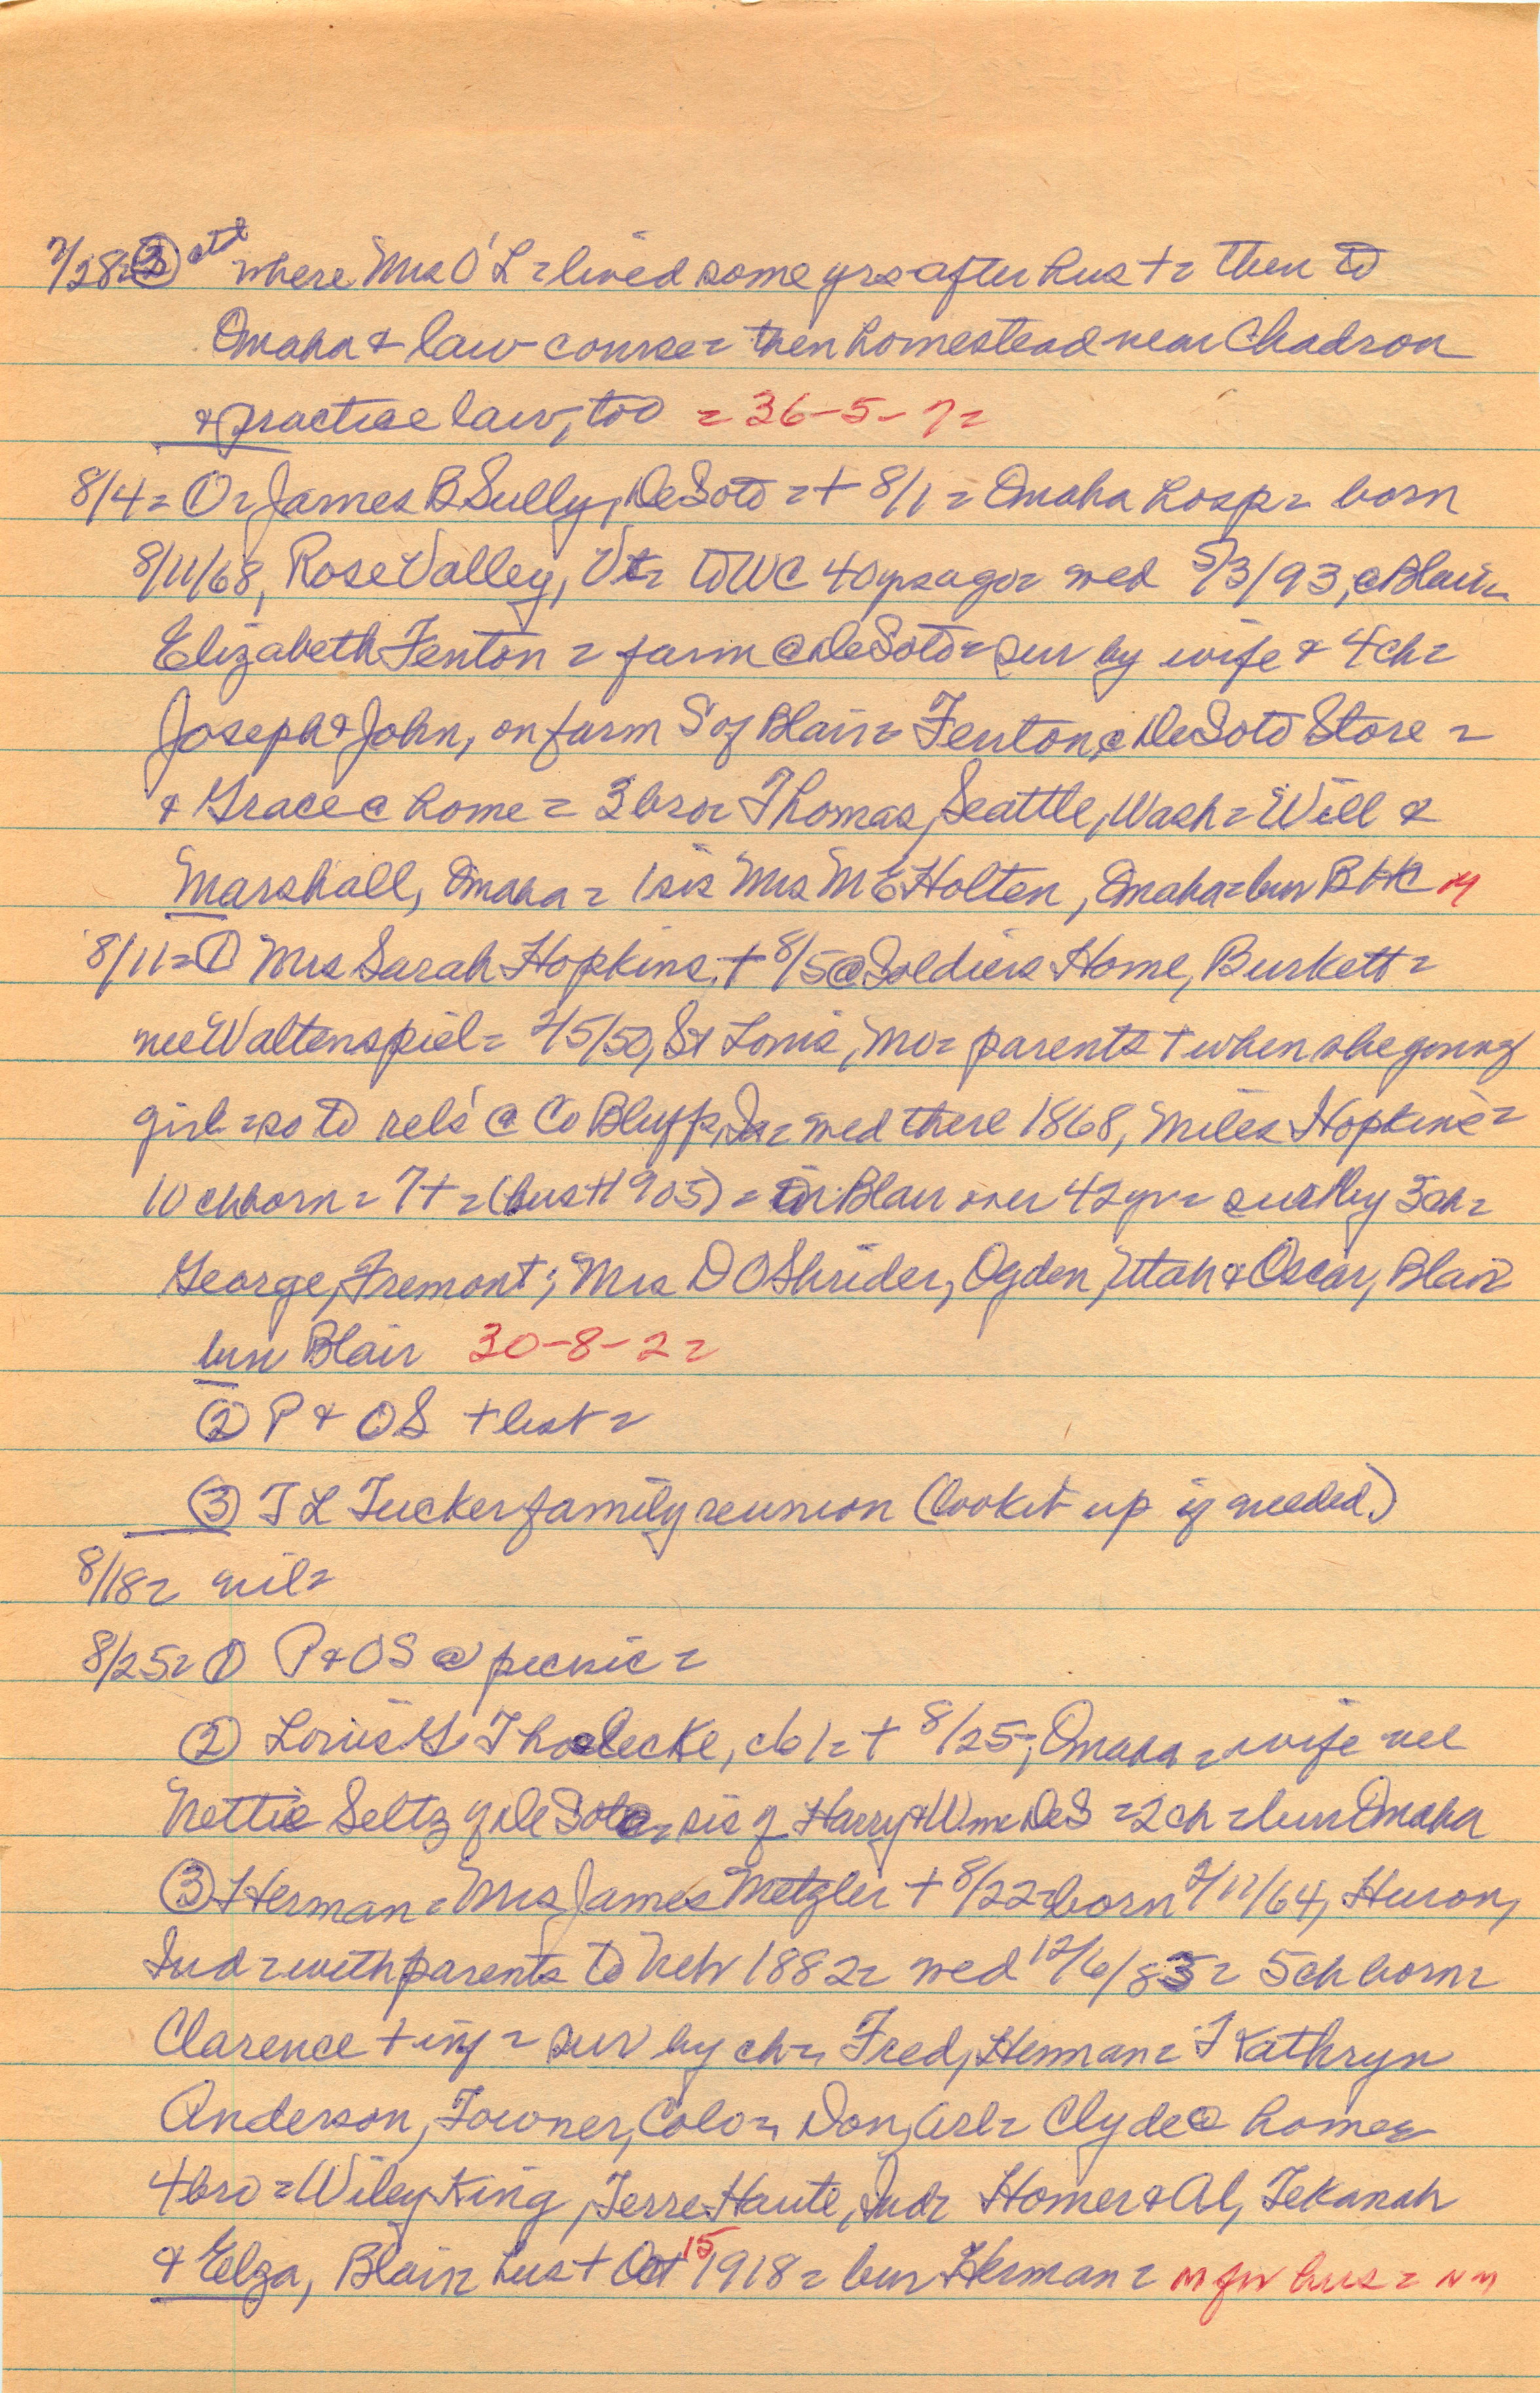 7/28= ③ ctd where Mrs O'L = lived some yrs after hus + = then to
Omaha & law course = then homestead near Chadron
& practice law, too = 36-5-7=
8/4= ① = James B Sully, DeSoto = + 8/1 = Omaha hosp = born
8/11/68, Rose Valley, Vt = to WC 40 yrs ago = med 5/3/93, @ Blair =
Elizabeth Fenton = farm @ DeSoto = sur by wife & 4 ch =
Joseph & John, on farm S of Blair = Fenton, @ DeSoto Store =
& Grace @ home = 3 bro = Thomas, Seattle, Wash = Will &
Marshall, Omaha = 1 sis Mrs M E Holten, Omaha = bur
8/11= ① Mrs Sarah Hopkins, + 8/5 @ Soldiers Home, Burkett =
nee Waltenspiel = St Louis, Mo = parents + when she young
girl = so to rels @ Co Bluffs, Ia = med there 1868, Miles Hopkins =
10 ch born = 7 + = (hus + 1905) = in Blair over 42 yr = sur by 3 ch =
George, Fremont; Mrs D O Shrider, Ogden, Utah & Oscar, Blair
bur Blair 30-8-2=
② P & OS + list =
③ T L Tucker family reunion (look it up if needed.)
8/18= nil=
8/25= ① P & OS @ picnic =
② Louis G + 8/25, Omaha = wife nee
Nettie Seltz of DeSoto = sis of Harry & Wm DeS = 2 ch = bur Omaha
③ Herman = Mrs James Metzler + 8/22 = born 2/11/64, Huron,
Ind = with parents to Neb 1882= med 12/6/83= 5 ch born =
Clarence + inf = sur by ch =, Fred, Herman = Kathryn
Anderson, Towner, Colo =, Don, Arl = Clyde @ home =
4 bro = Wiley King, Terre Haute, Ind = Homer & Al, Tekamah
& Elza, Blair = hus + Oct 15 1918 = bur Herman = hus =